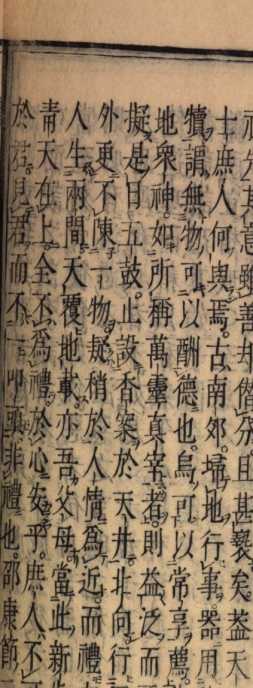 意雖善却僭分且甚褻矣蓋天
士庶人何與焉古南郊埽地行事器用
犢謂無物可以酬德也烏可以常享薦
地衆神如所稱萬靈眞宰者則益泛而
擬是日五鼓止設香案於天井北向行
外更不陳一物疑稍於人情爲近而禮
人生兩間天覆地載亦吾父母當此新
青天在上全不爲禮於心安乎庶人不
於君見君而不一叩頭非禮也邵康節